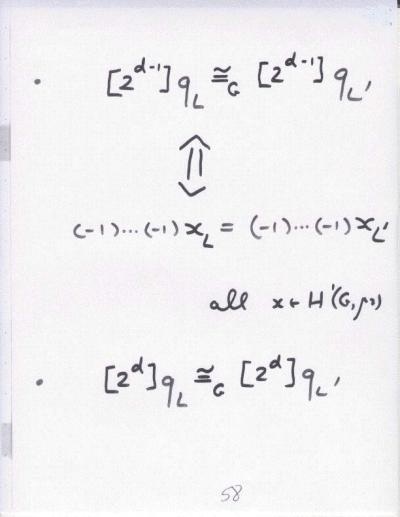 · [2^{d-1}] q_L ≅_G [2^{d-1}] q_{L'}
⇕
(-1)...(-1) x_L = (-1)...(-1) x_{L'}
all x ∈ H^1(G, μ_2)
· [2^d] q_L ≅_G [2^d] q_{L'}
58